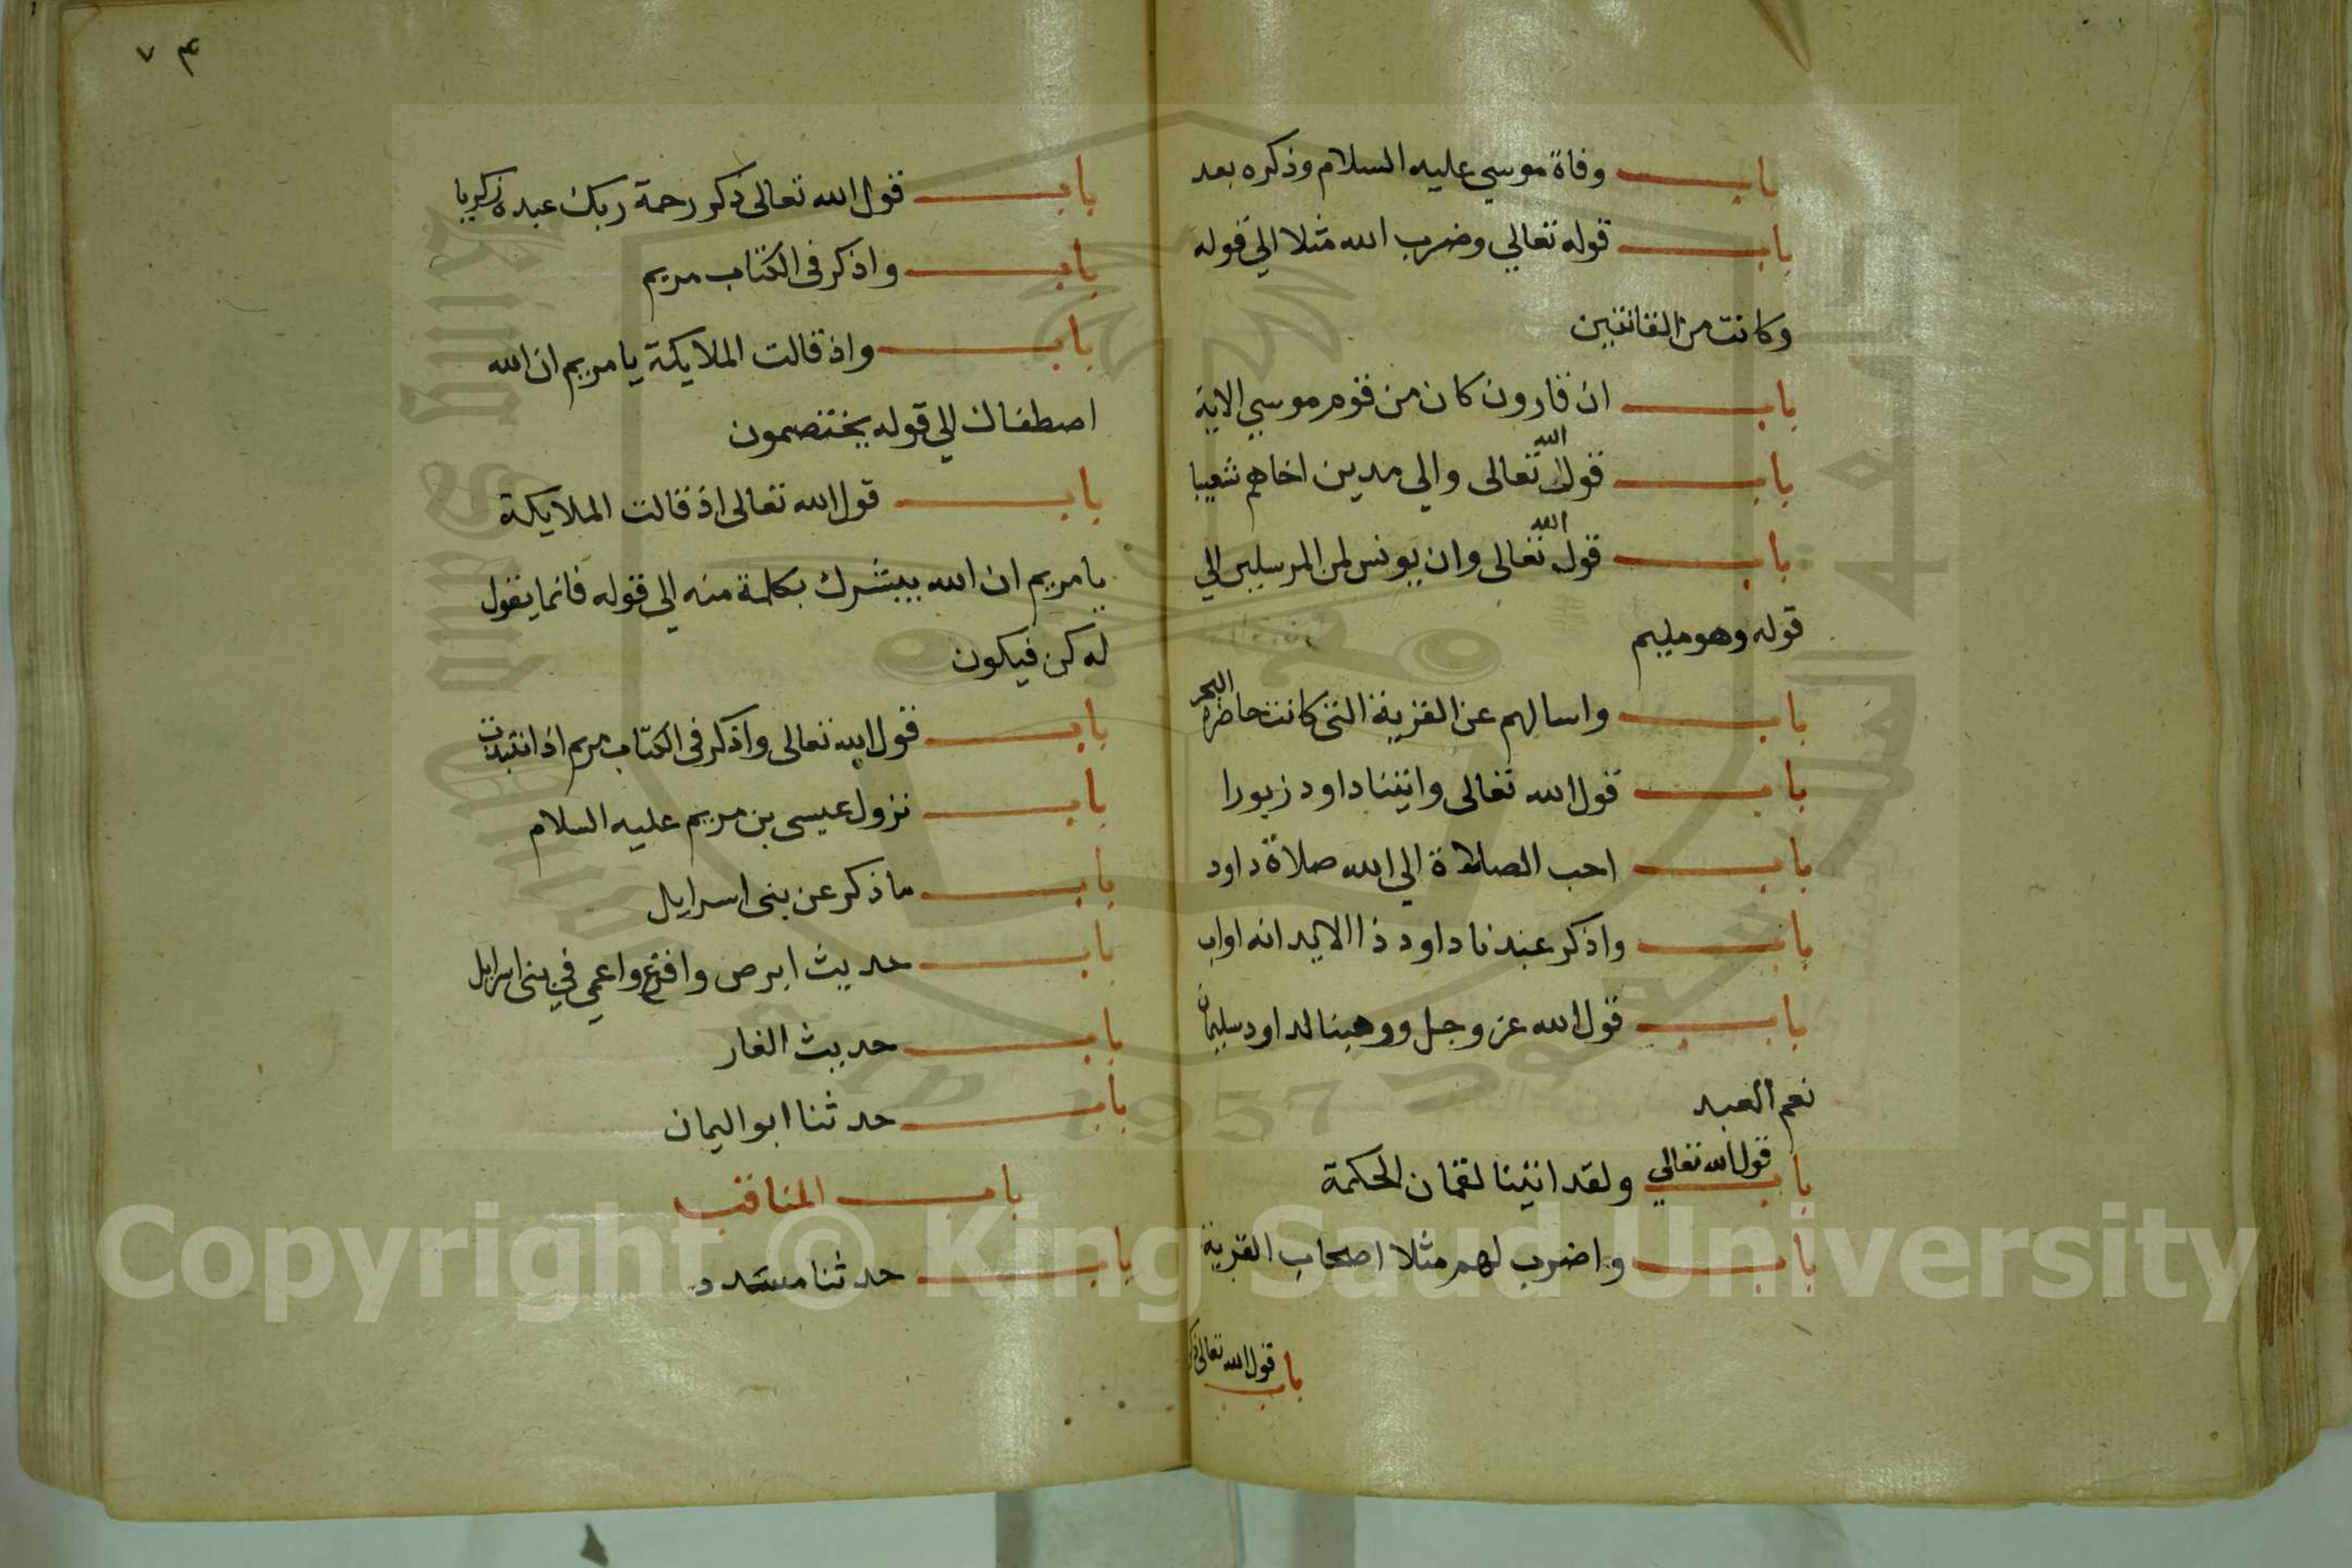 باب وفاة موسي عليه السلام وذكره بعد
باب قوله تعالي وضرب الله مثلا الي قوله
وكانت من القانتين
باب ان قارون كان من قوم موسي الاية
باب قول الله تعالى والي مدين اخاهم شعيبا
باب قول الله تعالى وان يونس لمن المرسلين الي
قوله وهو مليم
باب واسالهم عن القرية التي كانت حاضرة البحر
باب قول الله تعالى واتينا داود زبورا
باب احب الصلاة الي الله صلاة داود
باب واذكر عبدنا داود ذا الايد انه اواب
باب قول الله عز وجل ووهبنا لداود سليمان
نعم العبد
باب قول الله تعالي ولقد اتينا لقمان الحكمة
باب واضرب لهم مثلا اصحاب القرية
باب قول الله تعالى ذكر
٧٤
باب قول الله تعالى ذكر رحمة ربك عبده زكريا
باب واذكر في الكتاب مريم
باب واذ قالت الملايكة يا مريم ان الله
اصطفاك الي قوله يختصمون
باب قول الله تعالى اذ قالت الملايكة
يا مريم ان الله يبشرك بكلمة منه الي قوله فانما يقول
له كن فيكون
باب قول الله تعالى واذكر في الكتاب مريم اذ انتبذت
باب نزول عيسى بن مريم عليه السلام
باب ما ذكر عن بنى اسرايل
باب حديث ابرص واقرع واعمي في بنى اسرايل
باب حديث الغار
باب حدثنا ابو اليمان
باب المناقب
باب حدثنا مسدد
Copyright © King Saud University
King Saud University
1957